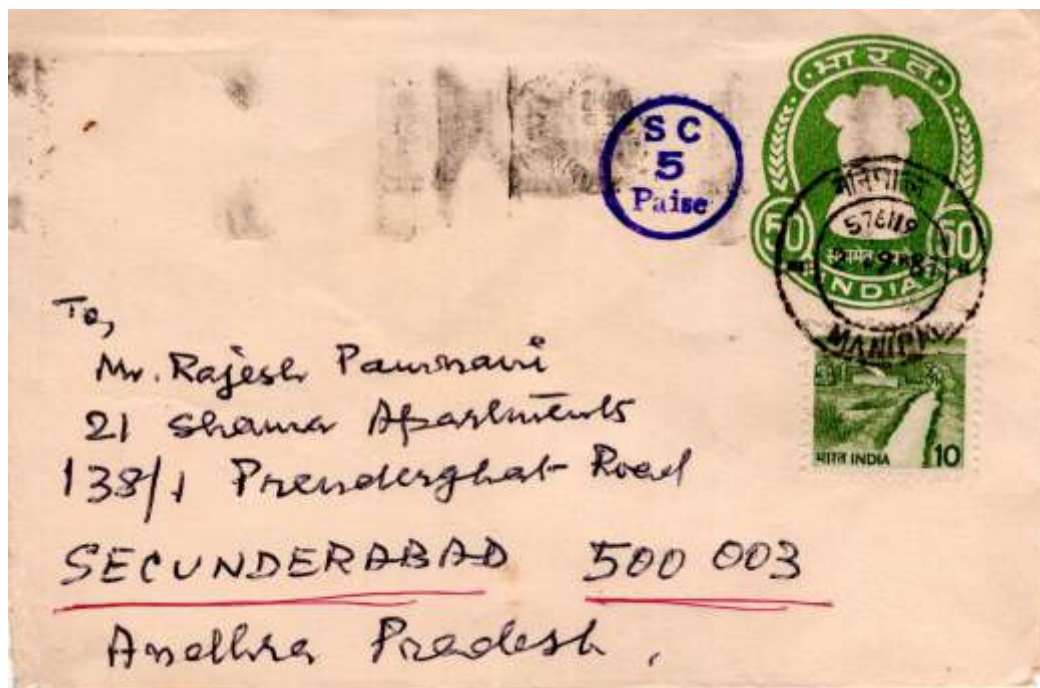 भारत
S C
5
Paise
मनिपाल
576119
50 सत्यमेव जयते 50
2 9 87
INDIA
MANIPAL
भारत INDIA 10
To,
Mr. Rajesh Pamnani
21 Shama Apartments
138/1 Prenderghat Road
SECUNDERABAD 500 003
Andhra Pradesh,